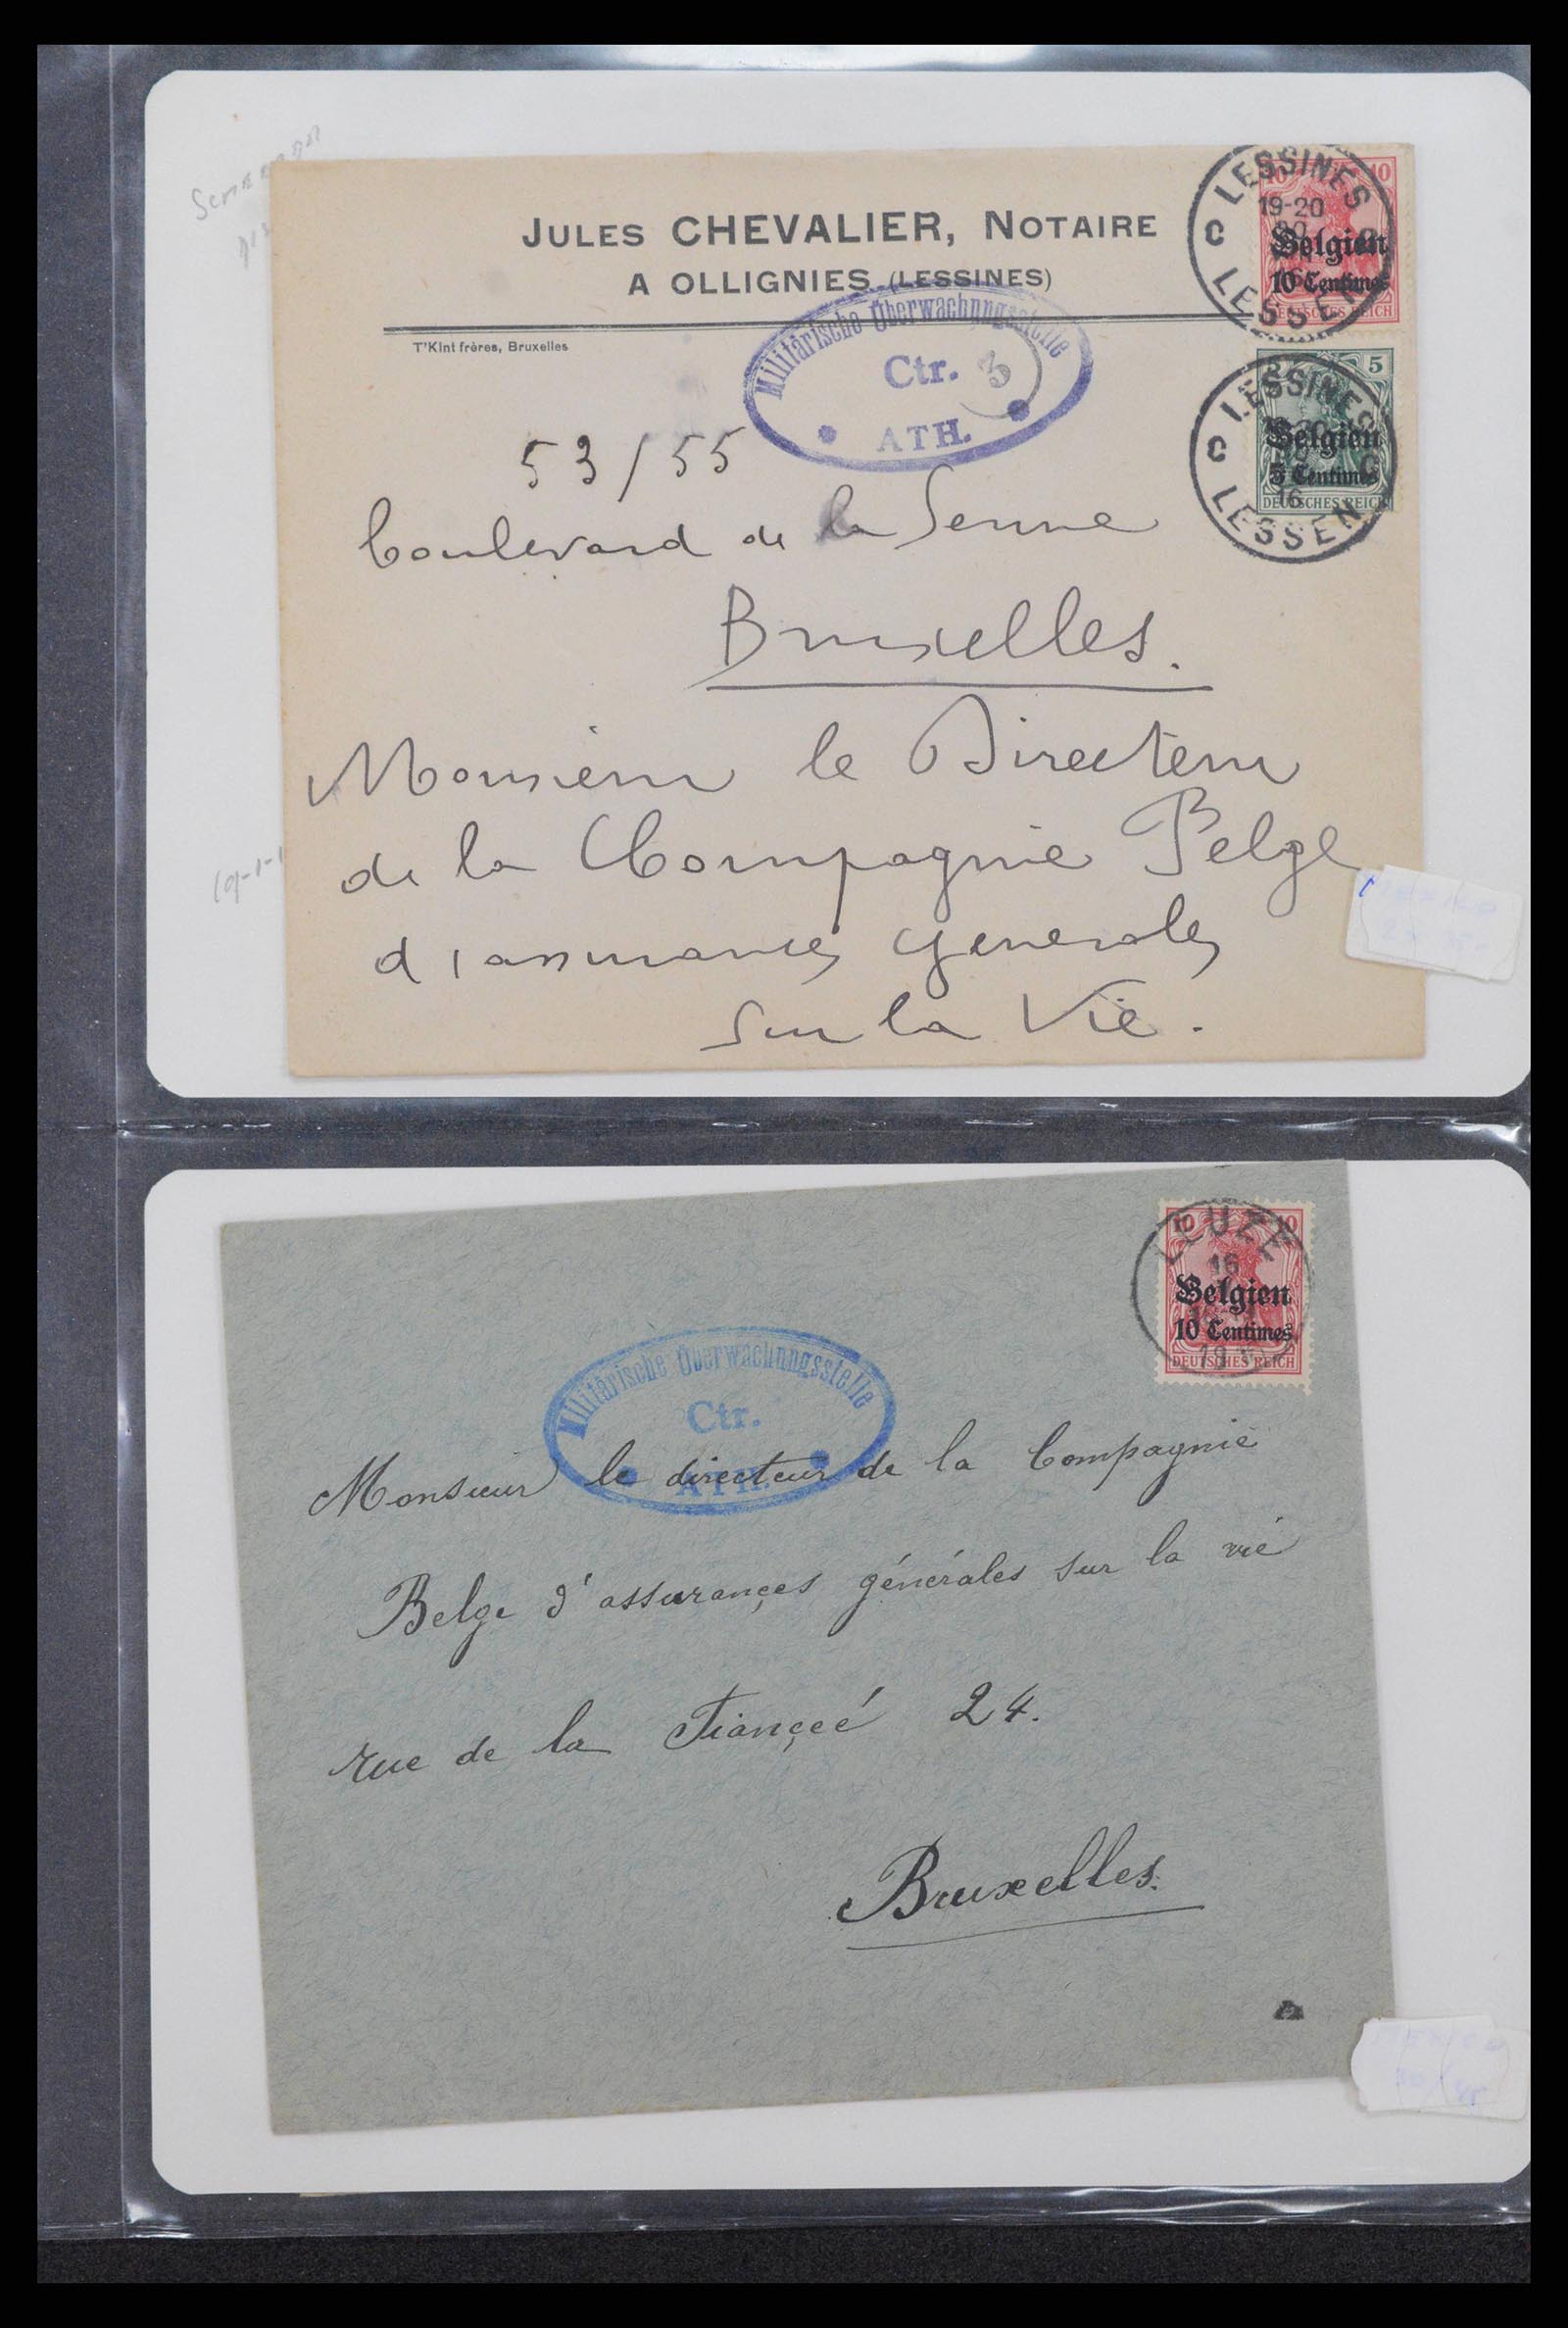 JULES CHEVALIER, NOTAIRE
A OLLIGNIES (LESSINES)
T'Kint frères, Bruxelles
Militärische Überwachungsstelle
Ctr. 3
ATH.
LESSINES
19-20
C
LESSEN
10 10
Belgien
10 Centimes
DEUTSCHES REICH
LESSINES
C C
16
LESSEN
5
Belgien
5 Centimes
DEUTSCHES REICH
53/55
boulevard de la Senne
Bruxelles.
Monsieur le Directeur
de la Compagnie Belge
d'assurances generales
sur la Vie.
LEUZE
16
10 10
Belgien
10 Centimes
DEUTSCHES REICH
Militärische Überwachungsstelle
Ctr.
ATH.
Monsieur le directeur de la Compagnie
Belge d'assurançes générales sur la vie
rue de la Fiançéé 24.
Bruxelles.